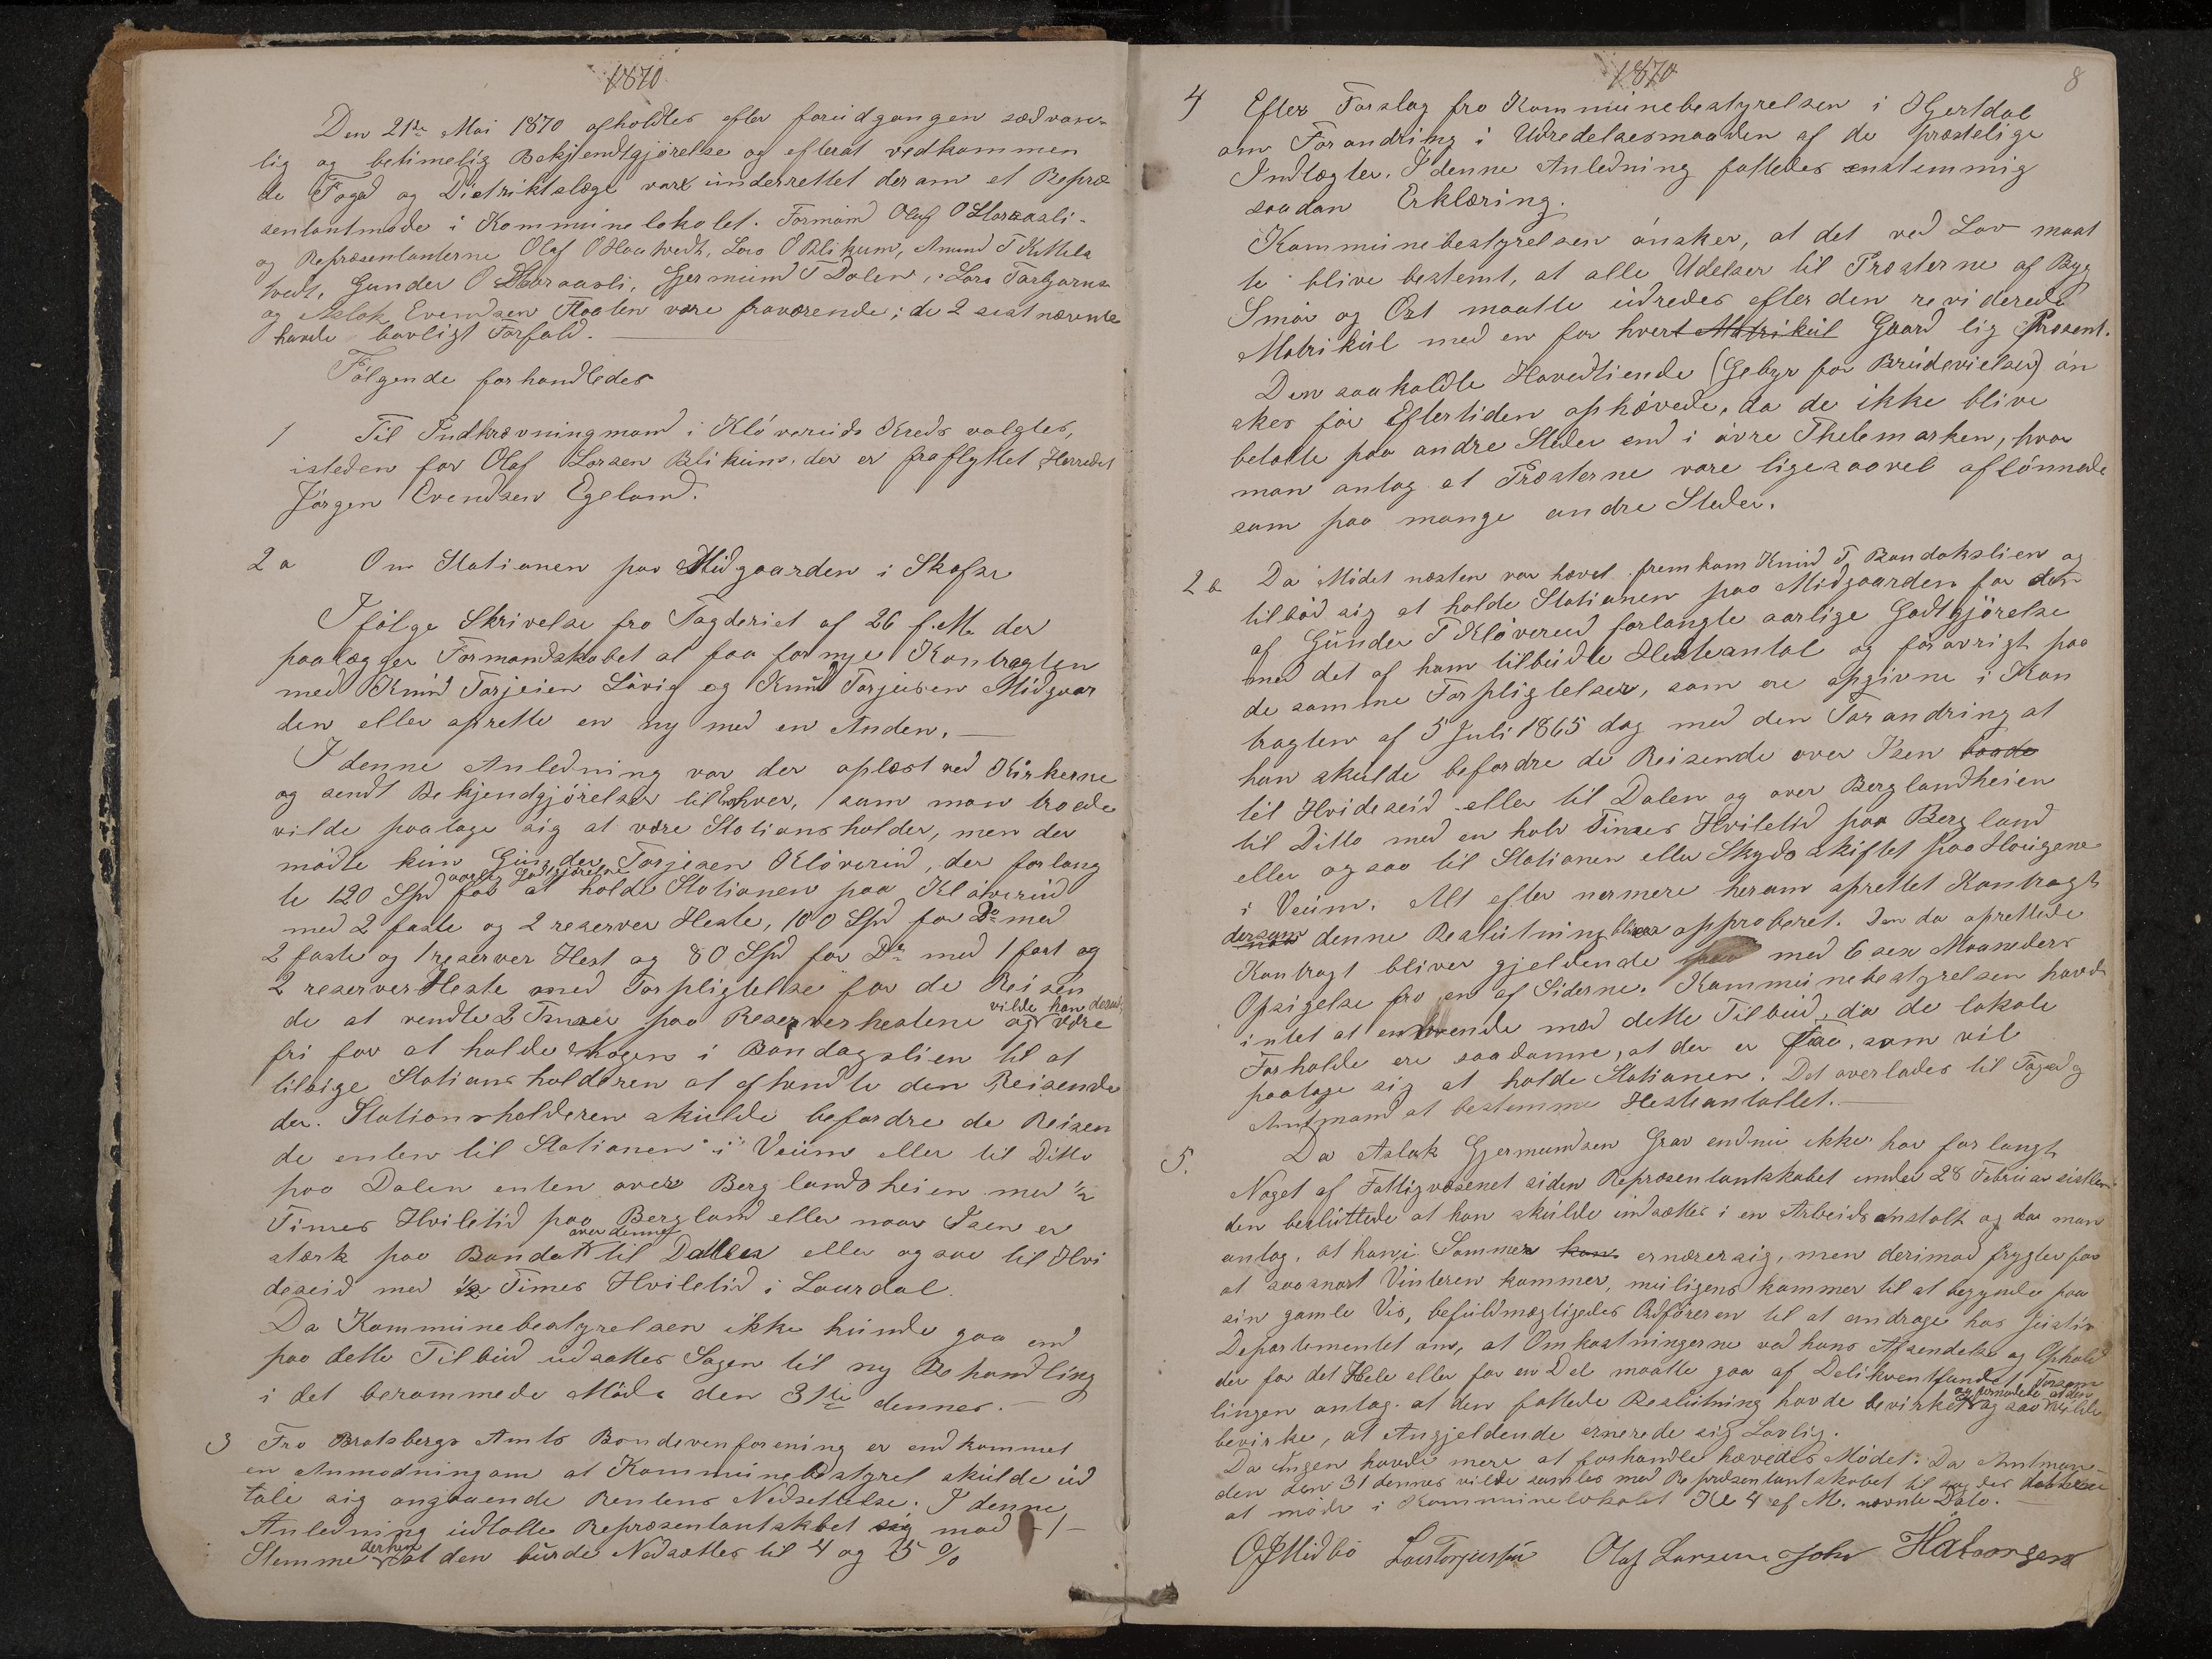 1870
Den 21de Mai 1870 afholdtes efter forudgangen sædvan-
lig og betimelig Bekjendtgjörelse og efterat vedkommen
de Foged og Distriktslæge vare underrettet derom et Repræ
sentantmöde i Kommunelokalet. Formand Olaf O Storaasli-
og Repræsentanterne Olaf O Haatvedt, Lars O Blikum, Amund T Kittela
tvedt, Gunder O Storaasli, Gjermund T Dalen, Lars Torbjørns
og Aslak Evendsen Floaten vare fraværende; de 2 sistnævnte
havde lovligt Forfald.
Fölgende forhandledes
1 Til Indkrævningmand i Klövereids Kreds valgtes,
isteden for Olaf Larsen Blikum, der er fraflyttet Herredet
Jörgen Evendsen Egeland.
2 a Om Stationen paa Midgaarden i Skafse
Ifölge Skrivelse fra Fogderiet af 26 f.M. der
paalægger Formandskabet at faa fornye Kontragten
med Knud Torjeien Lövig og Knud Torjusen Midgaar
den eller oprette en ny med en Anden.
I denne Anledning var der oplæst ved Kirkerne
og sendt Bekjendgjörelser til Enhver, som man troede
vilde paatage sig at være Stationsholder, men der
mödte kun Gunder Torjesen Klöverud, der forlang
te 120 Spd aarlig Godtgjörelse for at holde Stationen paa Klöverud
med 2 faste og 2 reserver Heste, 100 Spd for Do med
2 faste og 1 reserver Hest og 80 Spd for Do med 1 fast og
2 reserver Heste med Forpligtelse for de Reisen
de at vendte 2 Timer paa Reserverhestene og vilde han desud være
fri for at holde Skogen i Bandagslien til at
tilsige Stationsholderen at afhendte den Reisende
der. Stationsholderen skulde befordre de Reisen
de enten til Stationen i Veum eller til Ditto
paa Dalen enten over Berglandsheien med 1/2
Times Hviletid paa Bergland eller naar Isen er
stærk paa Bandak over denne til Dalen eller ogsaa til Hvi
deseid med 1/2 Times Hviletid i Laurdal.
Da Kommunebestyrelsen ikke kunde gaa ind
paa dette Tilbud udsattes Sagen til ny Behandling
i det berammede Möde den 31te dennes.
3 Fra Bratsbergs Amts Bondevenforening er indkommet
en Anmodning om at Kommunebestyrel skulde ud
tale sig angaaende Rentens Nedsettelse. I denne
Anledning udtalte Repræsentantskbet sig mod -1-
Stemme derhen at den burde Nedsættes til 4 og 5 %
1870
8
4 Efter Forslag fra Kommunebestyrelsen i Hjertdal
om Forandring i Udredelsesmaaden af de præstelige
Indtægter. I denne Anledning fattedes enstemmig
saadan Erklæring.
Kommunebestyrelsen önsker, at det ved Lov maat
te blive bestemt, at alle Udelser til Præsterne af Byg
Smör og Ost maatte udredes efter den reviderede
Matrikul med en for hvert Matrikul Gaard lig Prosent.
Den saakaldte Hovedtiende (Gebyr for Brudevielser) ön
skes for Eftertiden ophövede, da de ikke blive
betalte paa andre Steder end i övre Thelemarken, hvor
man antog at Præsterne vare ligesaavel aflönnede
som paa mange andre Steder.
2 b Da Mödet næsten var hævet fremkom Knud T Bandakslien og
tilböd sig at holde Stationen paa Midgaarden for den
af Gunder T Klöverud forlangte aarlige Godtgjörelse
med det af ham tilbudte Hesteantal og forövrigt paa
de samme Forpligtelser, som ere opgivne i Kon
tragten af 5 Juli 1865 dog med den Forandring at
han skulde befordre de Reisende over Isen baade
til Hvideseid eller til Dalen og over Berglandheien
til Ditto med en halv Times Hviletid paa Bergland
eller ogsaa til Stationen eller Skyds skiftet paa Haugene
i Veum. Alt efter nærmere herom oprettet Kontragt
dersom denne Beslutning bliver approberet. Den da oprettede
Kontragt bliver gjeldende med 6 sex Maaneders
Opsigelse fra en af Siderne. Kommunebestyrelsen havde
intet at indvende mod dette Tilbud, da de lokale
Forholde ere saadanne, at der er Faa, som vil
paatage sig at holde Stationen. Det overlades til Foged og
Amtmand at bestemme Hesteantallet.
5. Da Aslak Gjermundsen Grav endnu ikke har forlangt
Noget af Fattigvæsenet siden Repræsentantskabet under 28 Februar sistlen
den besluttede at han skulde indsættes i en Arbeidsanstalt og da man
antog, at han i Sommer kan ernærer sig, men derimod frygter for
at saasnart Vinteren kommer, muligens kommer til at begynde paa
sin gamle Vis, befuldmægtigedes Ordföreren til at andrage hos Justits
Departementet om, at Omkostningerne ved hans Afsendelse og Ophold
der for det Hele eller for en Del maatte gaa af Delikventfundet Forsam
lingen antog at den fattede Beslutning havde bevirket og formodede at den ogsaa vilde
bevirke, at Angjeldende ernerede sig Lovlig.
Da Ingen havde mere at forhandle hævedes Mödet. Da Amtman-
den den 31 dennes vilde samles med Repræsentantskabet til
at möde i Kommunelokalet Kl 4 ef M. nævnte Dato.
O J Midbö Lars Torjussen Olaf Larsen John Halvorsen